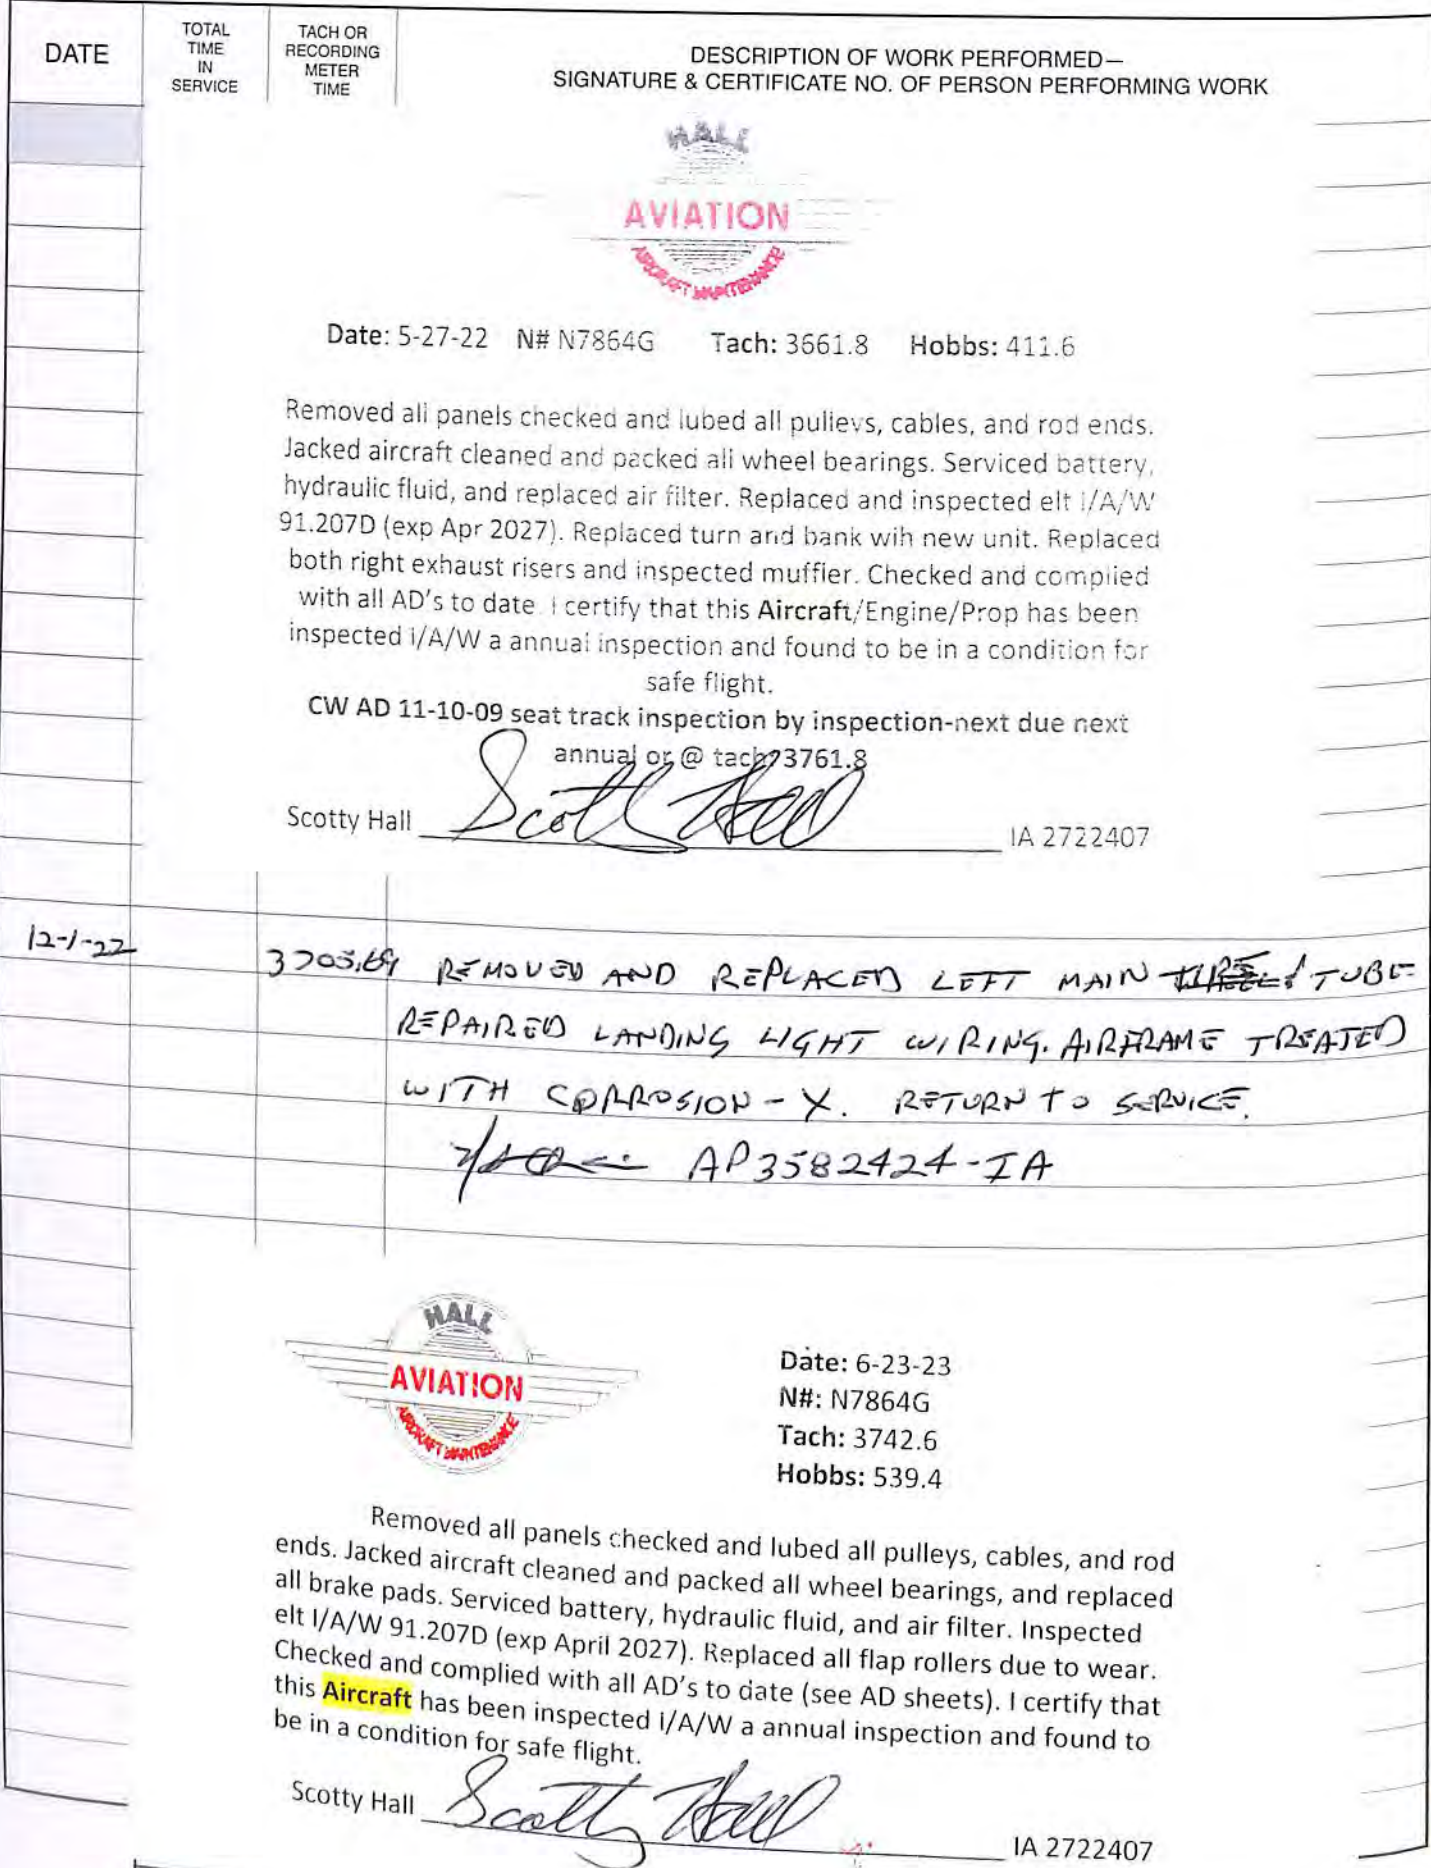 DATE
TOTAL
TIME
IN
SERVICE
TACH OR
RECORDING
METER
TIME
DESCRIPTION OF WORK PERFORMED—
SIGNATURE & CERTIFICATE NO. OF PERSON PERFORMING WORK
HALL
AVIATION
AIRCRAFT MAINTENANCE
Date: 5-27-22 N# N7864G Tach: 3661.8 Hobbs: 411.6
Removed all panels checked and lubed all pulleys, cables, and rod ends.
Jacked aircraft cleaned and packed all wheel bearings. Serviced battery,
hydraulic fluid, and replaced air filter. Replaced and inspected elt i/A/W
91.207D (exp Apr 2027). Replaced turn and bank wih new unit. Replaced
both right exhaust risers and inspected muffler. Checked and complied
with all AD's to date. I certify that this Aircraft/Engine/Prop has been
inspected i/A/W a annual inspection and found to be in a condition for
safe flight.
CW AD 11-10-09 seat track inspection by inspection-next due next
annual or @ tach 3761.8
Scotty Hall Scotty Hall IA 2722407
12-1-22 REMOVED AND REPLACED LEFT MAIN TUBE
REPAIRED LANDING LIGHT WIRING. AIRFRAME TREATED
WITH CORROSION-X. RETURN TO SERVICE.
AP3582424-IA
HALL
AVIATION
AIRCRAFT MAINTENANCE
Date: 6-23-23
N#: N7864G
Tach: 3742.6
Hobbs: 539.4
Removed all panels checked and lubed all pulleys, cables, and rod
ends. Jacked aircraft cleaned and packed all wheel bearings, and replaced
all brake pads. Serviced battery, hydraulic fluid, and air filter. Inspected
elt I/A/W 91.207D (exp April 2027). Replaced all flap rollers due to wear.
Checked and complied with all AD's to date (see AD sheets). I certify that
this Aircraft has been inspected i/A/W a annual inspection and found to
be in a condition for safe flight.
Scotty Hall Scotty Hall IA 2722407